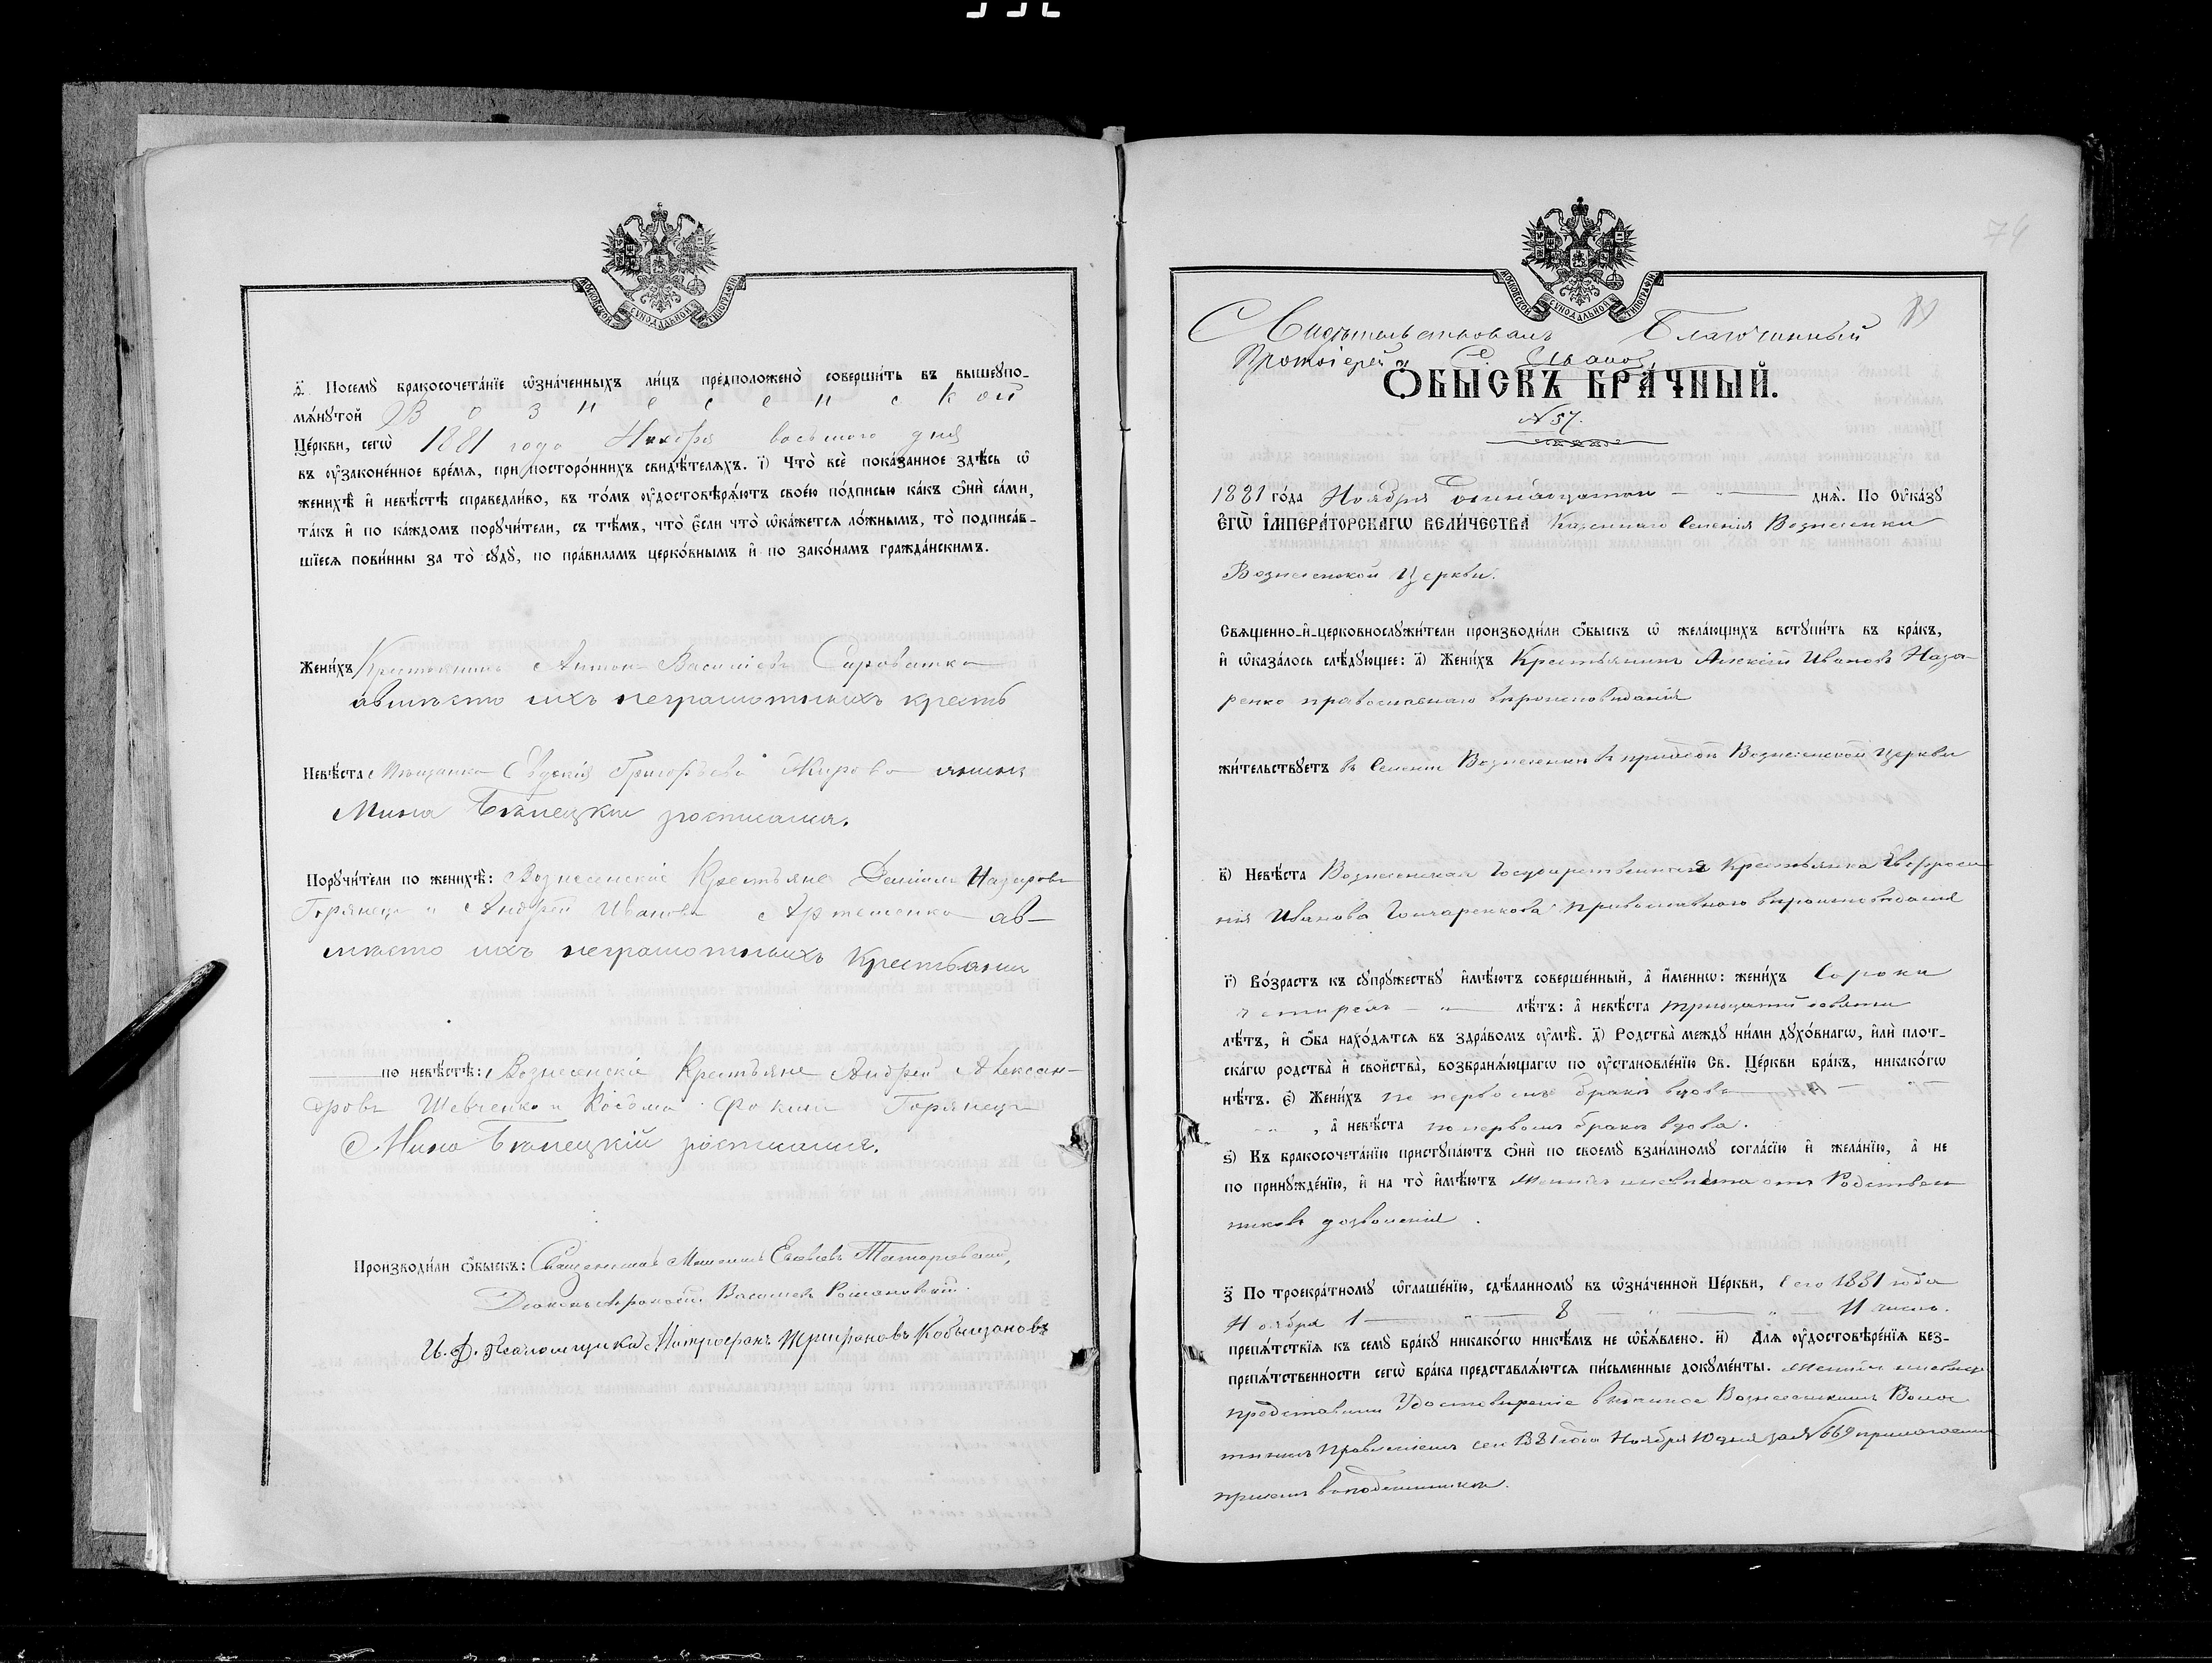 МОСКОВСКОЙ СѴНОДАЛЬНОЙ ТИПОГРАФІИ
д҃. Посемꙋ бракосочета́нїе ѡ҆зна́ченныхъ ли́цъ предположено̀ соверши́ть въ вышеꙋпо-
мѧ́нꙋтой Вознесенской
Це́ркви, сегѡ̀ 1881 года Ноября восьмого дня
въ ᲂу҆зако́не́нное вре́мѧ, при посторо́ннихъ свидѣ́телѧхъ. і҃) Что̀ всѐ пока́занное здѣ́сь ѡ҆
женихѣ̀ и҆ невѣ́стѣ справедли́во, въ то́мъ ᲂу҆достовѣрѧ́ютъ свое́ю по́дписью ка́къ ѻ҆нѝ са́ми,
та́къ и҆ по ка́ждомъ порꙋчи́тели, съ тѣ́мъ, что̀ є҆́сли что̀ ѡ҆ка́жетсѧ ло́жнымъ, то̀ подписа́в-
шїесѧ пови́нны за то̀ сꙋдꙋ̀, по пра́виламъ церко́внымъ и҆ по зако́намъ гражда́нскимъ.
Жени́хъ Крестьянинъ Антонъ Васильевъ Сироватка
авместо ихъ неграмотныхъ кресть
Невѣ́ста Мѣщанка Евдокія Григорьева Жирова янинъ
Мина росписался.
Порꙋчи́тели по женихѣ̀: Вознесенскіе Крестьяне Назаровъ
Горянецъ и Андрей Ивановъ Артеменко ав-
место ихъ неграмотныхъ Крестьянин
по невѣ́стѣ: Вознесенскіе Крестьяне Андрей Алексан-
дровъ Шевченко и Косьма Фокинъ Горянецъ
Мина росписался.
Производи́ли ѻ҆́быскъ: Священникъ
Діаконъ Васильевъ Романовскій.
И. Д. Псаломщика Митрофанъ Трифоновъ
74
МОСКОВСКОЙ СѴНОДАЛЬНОЙ ТИПОГРАФІИ
Свидѣтельствовалъ Благочинный
Протоіерей С.
Ѻ҆БЫСКЪ БРА́ЧНЫЙ.
№ 57.
1881 го́да Ноября Одиннадцатаго днѧ̀. По ᲂу҆ка́зꙋ
Є҆ГѠ̀ И҆МПЕРА́ТОРСКАГѠ ВЕЛИ́ЧЕСТВА Казеннаго Селенія Вознесенки
Вознесенской Церкви.
Свѧще́нно-и҆-церковнослꙋжи́тели производи́ли ѻ҆́быскъ ѡ҆ жела́ющихъ встꙋпи́ть въ бра́къ,
и҆ ѡ҆каза́лось слѣ́дꙋющее: а҃) Жени́хъ Крестьянинъ Алексій Ивановъ Наза-
ренко православнаго вѣроисповѣданія
жи́тельствꙋетъ въ Селеніи Вознесенки въ приходѣ Вознесенской Церкви
в҃) Невѣ́ста Вознесенская Государственная Крестьянка Евфроси
нія Иванова Гончаренкова Православнаго вѣроисповѣданія
г҃) Во́зрастъ къ сꙋпрꙋ́жествꙋ и҆мѣ́ютъ соверше́нный, а҆ и҆́меннѡ: жени́хъ Сорока
четырехъ лѣ́тъ: а҆ невѣ́ста тридцати девяти
лѣ́тъ, и҆ ѻ҆́ба нахо́дѧтсѧ въ здра́вомъ ᲂу҆мѣ̀. д҃) Родства̀ междꙋ ни́ми дꙋхо́внагѡ, и҆лѝ плот-
ска́гѡ родства̀ и҆ сво́йства, возбранѧ́ющагѡ по ᲂу҆становле́нїю Св. Це́ркви бра́къ, никако́гѡ
нѣ́тъ. є҃) Жени́хъ по первомъ бракѣ вдовъ
, а҆ невѣ́ста по первомъ бракѣ вдова.
ѕ҃) Къ бракосочета́нїю пристꙋпа́ютъ ѻ҆нѝ по своемꙋ̀ взаи́мномꙋ согла́сїю и҆ жела́нїю, а҆ не
по принꙋжде́нїю, и҆ на то̀ и҆мѣ́ютъ Женихъ и невѣста отъ Родствен
никовъ дозволеніе.
з҃) По троекра́тномꙋ ѡ҆глаше́нїю, сдѣ́ланномꙋ въ ѡ҆зна́ченной Це́ркви, сего 1881 года
Ноября 1 8 11 числъ.
препѧ́тствїѧ къ семꙋ̀ бра́кꙋ никако́гѡ никѣ́мъ не ѡ҆б̾ѧ́влено. и҃) Длѧ ᲂу҆достовѣре́нїѧ без-
препѧ́тственности сегѡ̀ бра́ка представлѧ́ютсѧ пи́сьменные докꙋме́нты. Женихъ и невѣста
представили Удостовѣреніе выданное Вознесенскимъ Волос
тнымъ Правленіемъ сего 1881 года Ноября 10 дня за № 669